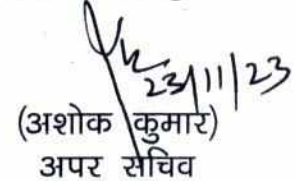 23/11/23
(अशोक कुमार)
अपर सचिव